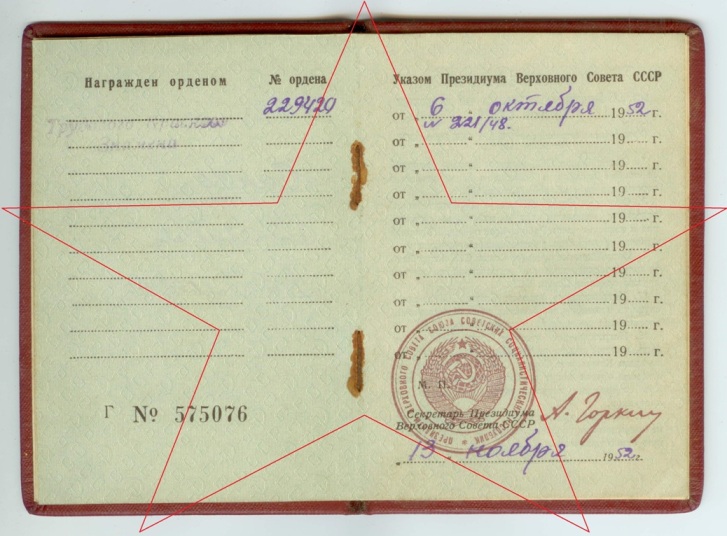 Награжден орденом
№ ордена
Трудового Красного
Знамени
229429
Г № 575076
Указом Президиума Верховного Совета СССР
от „ 6 “ октября 1952 г.
№ 221/48.
от „ “ 19 г.
от „ “ 19 г.
от „ “ 19 г.
от „ “ 19 г.
от „ “ 19 г.
от „ “ 19 г.
от „ “ 19 г.
от „ “ 19 г.
от „ “ 19 г.
М. П.
Секретарь Президиума
Верховного Совета СССР
А. Горкин
„ 13 “ ноября 1952 г.